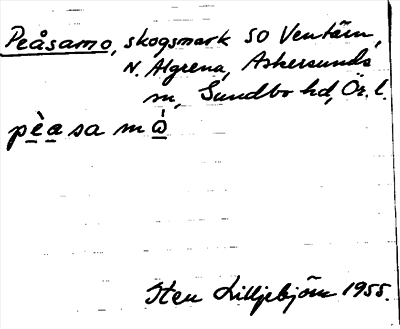 Peåsamo, skogsmark SO Ventärn,
N. Algrena, Askersunds
sn, Sundbo hd, Ör. l.
pèa sa mɷ̀
Sten Lilljebjörn 1955.